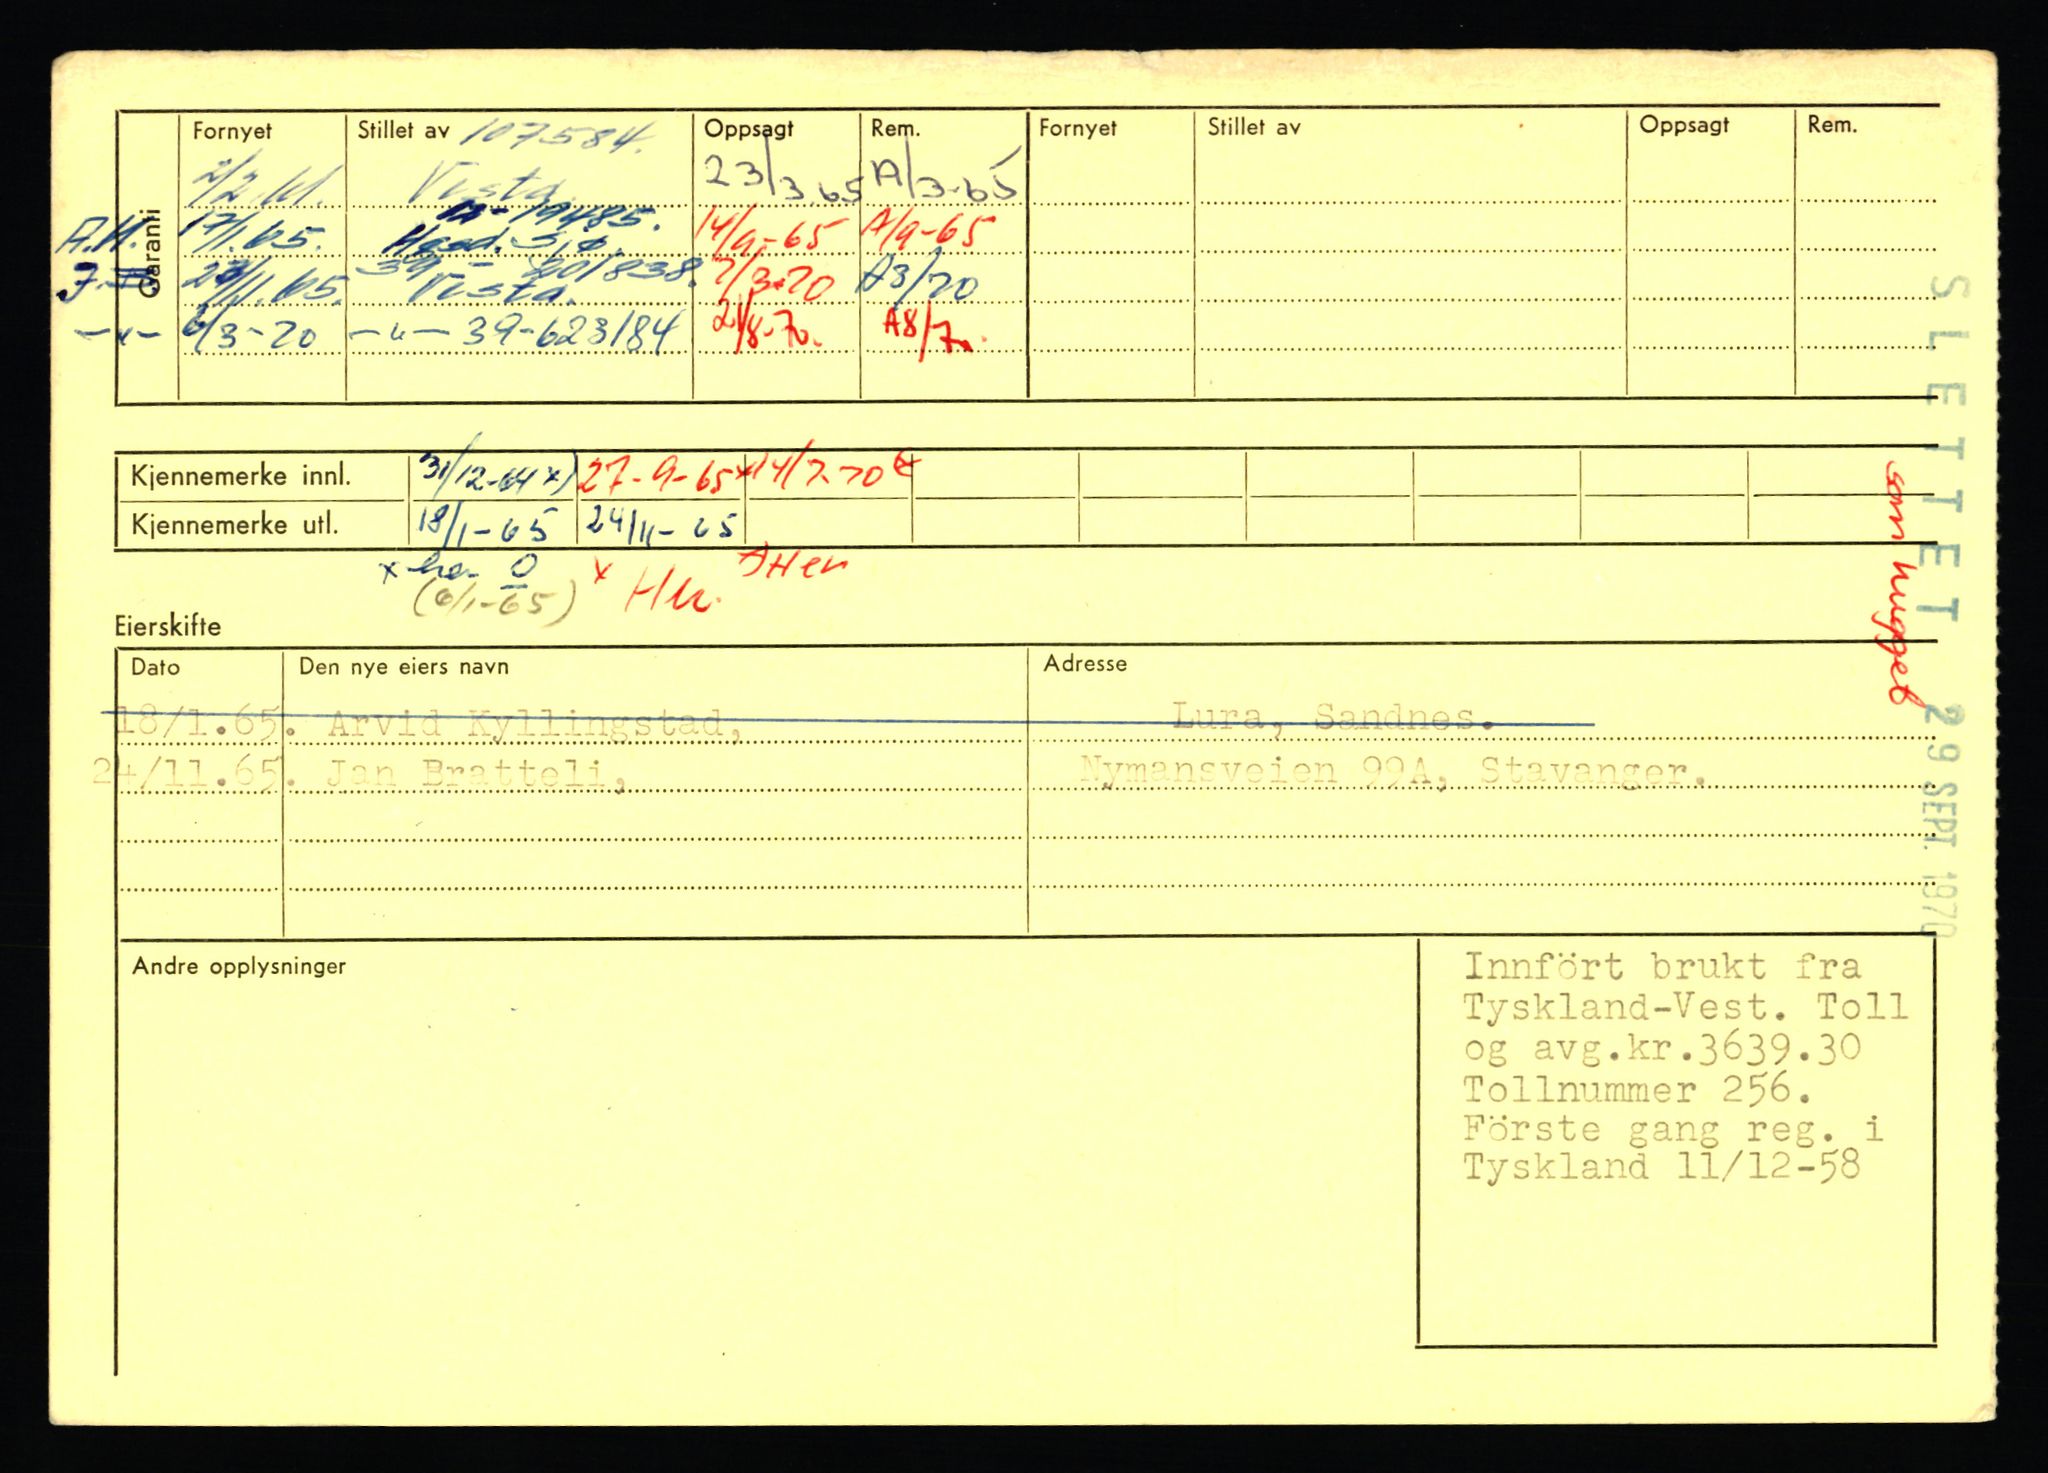 Garanti
Fornyet Stillet av 107584. Oppsagt Rem. Fornyet Stillet av Oppsagt Rem.
2/2.61. Vesta 23/3.65 A/3-65
19485.
A.K. 17/1.65. 14/9-65 A/9-65
39 - 601838.
J. /11.65. Vesta. 7/3-70 A3/70
—"— 6/3-70 —"— 39-623184 21/8-70. A8/70.
Kjennemerke innl. 31/12-64 x) 27-9-65 x 14/7-70 x
Kjennemerke utl. 18/1-65 24/11-65
x her 0 x Her x Her
(6/1-65)
Eierskifte
Dato Den nye eiers navn Adresse
18/1.65. Arvid Kyllingstad, Lura, Sandnes.
24/11.65. Jan Bratteli, Nymansveien 99A, Stavanger.
Andre opplysninger
Innfört brukt fra
Tyskland-Vest. Toll
og avg.kr.3639.30
Tollnummer 256.
Förste gang reg. i
Tyskland 11/12-58
SLETTET 29 SEPT. 1970
som hugget